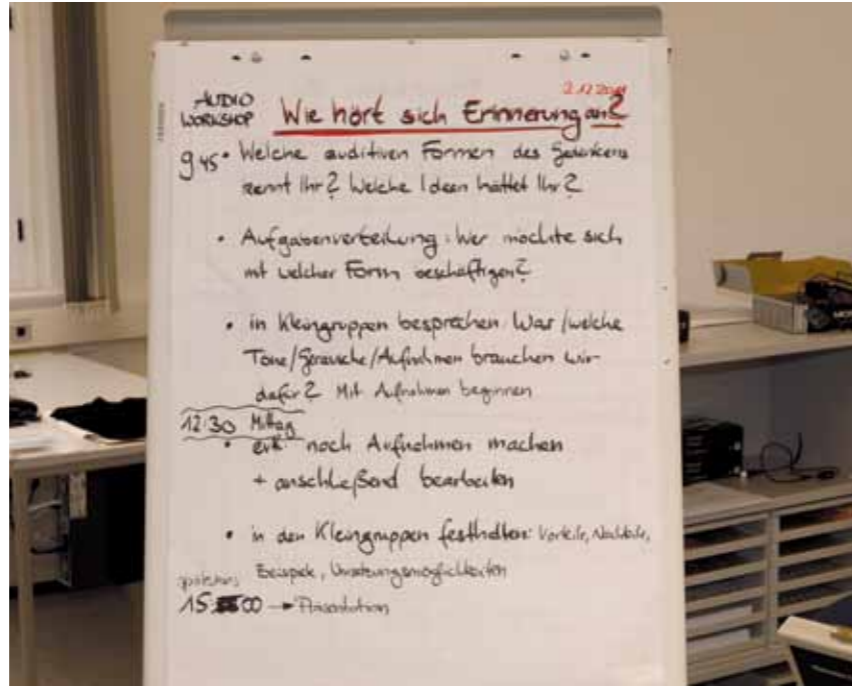 2.12.2011
AUDIO WORKSHOP Wie hört sich Erinnerung an?
9 45 • Welche auditiven Formen des Gedenkens
kennt Ihr? Welche Ideen hättet Ihr?
• Aufgabenverteilung: Wer möchte sich
mit welcher Form beschäftigen?
• in Kleingruppen besprechen: Was/welche
Töne/Geräusche/Aufnahmen brauchen wir
dafür? Mit Aufnahmen beginnen
12:30 Mittag
• evtl. noch Aufnahmen machen
+ anschließend bearbeiten
• in den Kleingruppen festhalten: Vorteile, Nachteile,
Beispiele, Umsetzungsmöglichkeiten
spätestens
15 00 → Präsentation